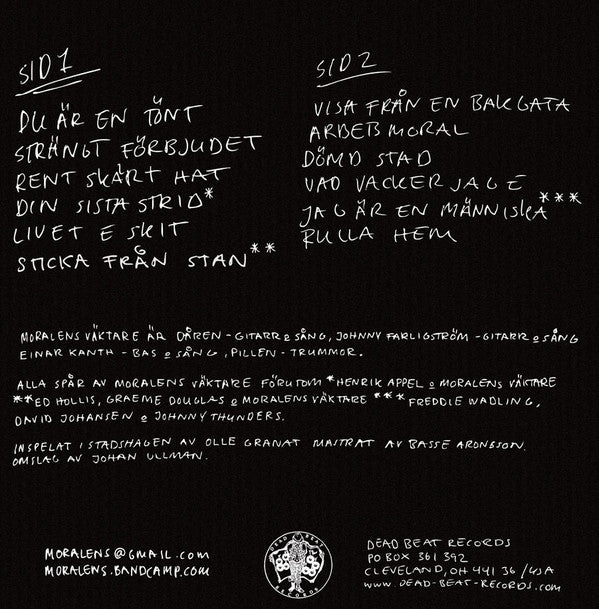 SID 1
DU ÄR EN TÖNT
STRÄNGT FÖRBJUDET
RENT SKÄRT HAT
DIN SISTA STRID*
LIVET E SKIT
STICKA FRÅN STAN**
SID 2
VISA FRÅN EN BAKGATA
ARBETSMORAL
DÖMD STAD
VAD VACKER JAG E
JAG ÄR EN MÄNNISKA***
RULLA HEM
MORALENS VÄKTARE ÄR DÅREN - GITARR o SÅNG, JOHNNY FARLIGSTRÖM - GITARR o SÅNG
EINAR KANTH - BAS o SÅNG, PILLEN - TRUMMOR.
ALLA SPÅR AV MORALENS VÄKTARE FÖRUTOM *HENRIK APPEL o MORALENS VÄKTARE
**ED HOLLIS, GRAEME DOUGLAS o MORALENS VÄKTARE ***FREDDIE WADLING,
DAVID JOHANSEN o JOHNNY THUNDERS.
INSPELAT I STADSHAGEN AV OLLE GRANAT MASTRAT AV BASSE ARONSSON.
OMSLAG AV JOHAN ULLMAN.
MORALENS@GMAIL.COM
MORALENS.BANDCAMP.COM
DEAD BEAT
RECORDS
DEAD BEAT RECORDS
PO BOX 361 392
CLEVELAND, OH 441 36 /USA
WWW.DEAD-BEAT-RECORDS.COM